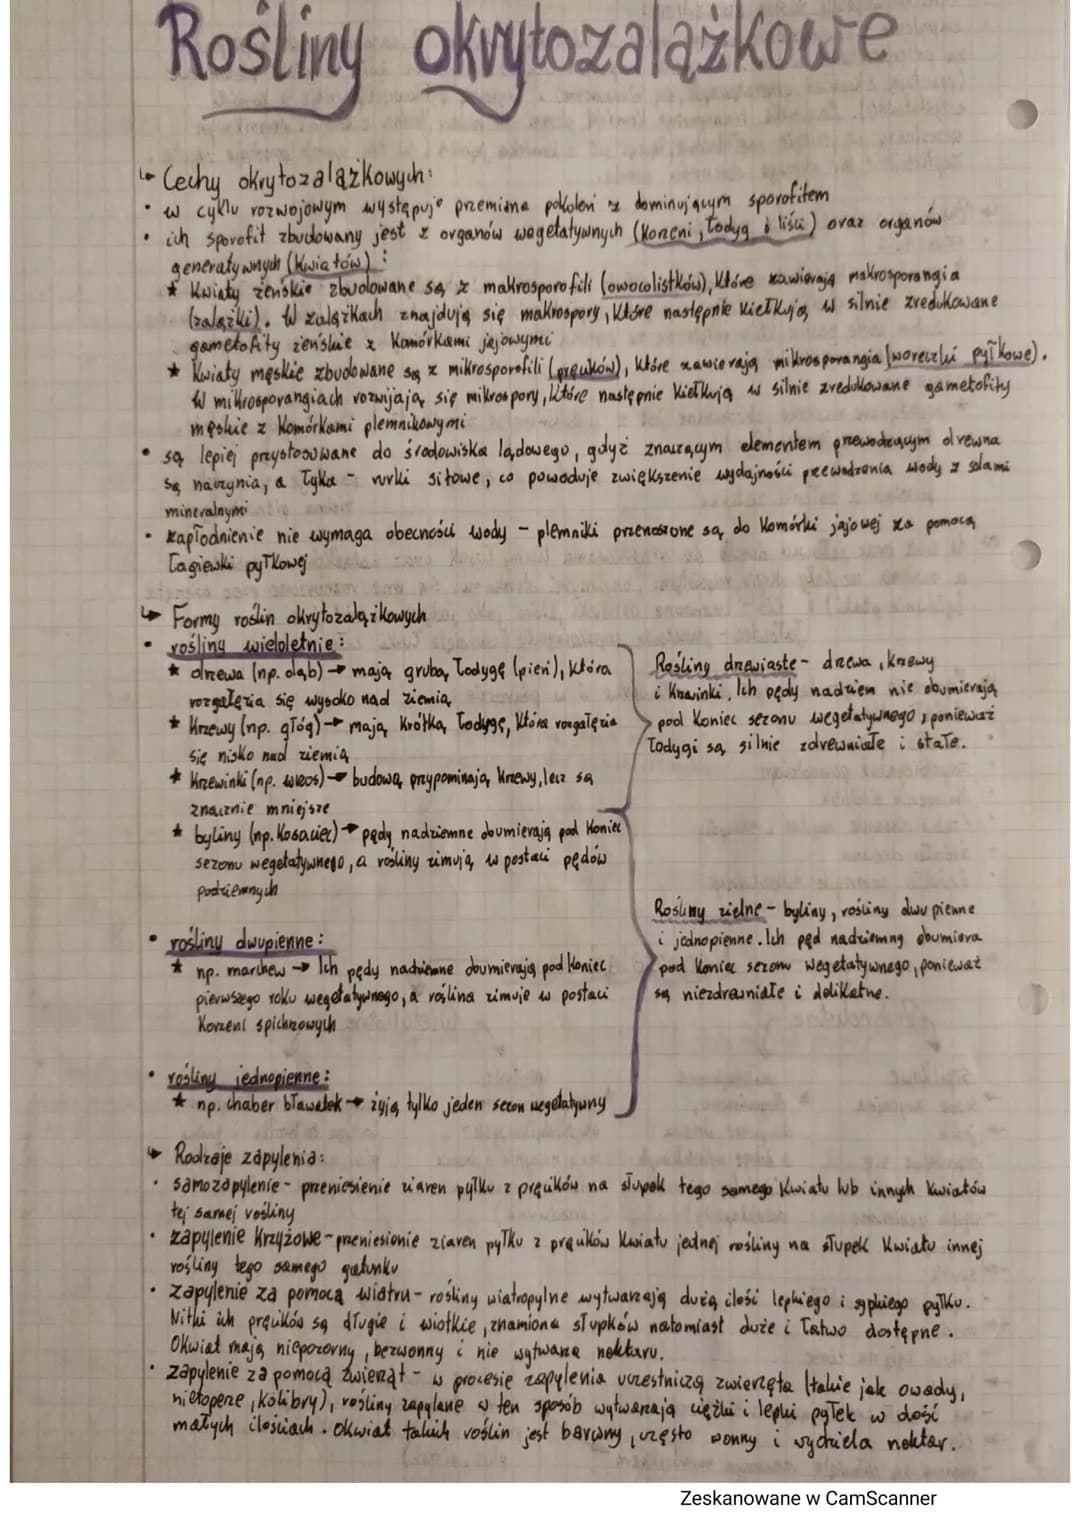 Rośliny okrytozalążkowe
↳ Cechy okrytozalążkowych:
• w cyklu rozwojowym występuje przemiana pokoleń z dominującym sporofitem
• ich sporofit zbudowany jest z organów wegetatywnych (korzeni, łodyg i liści) oraz organów
generatywnych (kwiatów):
* Kwiaty żeńskie zbudowane są z makrosporofili (owocolistków), które zawierają makrosporangia
(zalążki). W zalążkach znajdują się makrospory, które następnie kiełkują w silnie zredukowane
gametofity żeńskie z komórkami jajowymi
* Kwiaty męskie zbudowane są z mikrosporofili (pręcików), które zawierają mikrosporangia (woreczki pyłkowe).
W mikrosporangiach rozwijają się mikrospory, które następnie kiełkują w silnie zredukowane gametofity
męskie z komórkami plemnikowymi
• są lepiej przystosowane do środowiska lądowego, gdyż znaczącym elementem przewodzącym drewna
są naczynia, a łyka - rurki sitowe, co powoduje zwiększenie wydajności przewodzenia wody z solami
mineralnymi
• zapłodnienie nie wymaga obecności wody - plemniki przenoszone są do komórki jajowej za pomocą
łagiewki pyłkowej
↳ Formy roślin okrytozalążkowych
• rośliny wieloletnie:
* drzewa (np. dąb) → mają grubą łodygę (pień), która
rozgałęzia się wysoko nad ziemią
* krzewy (np. głóg) → mają krótką łodygę, która rozgałęzia
się nisko nad ziemią
* krzewinki (np. wrzos) → budową przypominają krzewy, lecz są
znacznie mniejsze
* byliny (np. kosaciec) → pędy nadziemne obumierają pod koniec
sezonu wegetatywnego, a rośliny zimują w postaci pędów
podziemnych
• rośliny dwupienne:
* np. marchew → Ich pędy nadziemne obumierają pod koniec
pierwszego roku wegetatywnego, a roślina zimuje w postaci
korzeni spichrzowych
• rośliny jednopienne:
* np. chaber bławatek → żyją tylko jeden sezon wegetatywny
Rośliny drzewiaste - drzewa, krzewy
i krzewinki. Ich pędy nadziem nie obumierają
pod koniec sezonu wegetatywnego, ponieważ
łodygi są silnie zdrewniałe i stałe.
Rośliny zielne - byliny, rośliny dwupienne
i jednopienne. Ich pęd nadziemny obumiera
pod koniec sezonu wegetatywnego, ponieważ
są niezdrewniałe i delikatne.
↳ Rodzaje zapylenia:
• samozapylenie - przeniesienie ziaren pyłku z pręcików na słupek tego samego kwiatu lub innych kwiatów
tej samej rośliny
• zapylenie krzyżowe - przeniesienie ziaren pyłku z pręcików kwiatu jednej rośliny na słupek kwiatu innej
rośliny tego samego gatunku
• zapylenie za pomocą wiatru - rośliny wiatropylne wytwarzają dużą ilość lepkiego i sypkiego pyłku.
Nitki ich pręcików są długie i wiotkie, znamiona słupków natomiast duże i łatwo dostępne.
Okwiat mają niepozorny, bezwonny i nie wytwarza nektaru.
• zapylenie za pomocą zwierząt - w procesie zapylenia uczestniczą zwierzęta (takie jak owady,
nietoperze, kolibry), rośliny zapylane w ten sposób wytwarzają ciężki i lepki pyłek w dość
małych ilościach. Okwiat takich roślin jest barwny, często wonny i wydziela nektar.
Zeskanowane w CamScanner